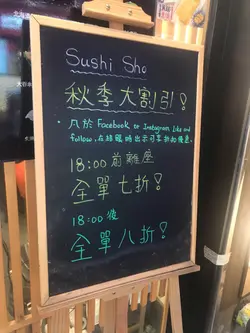 Sushi Sho
秋季大割引！
• 凡於 Facebook or Instagram like and
follow，在結賬時出示可享折扣優惠．
18:00 前離座
全單七折！
18:00 後
全單八折！